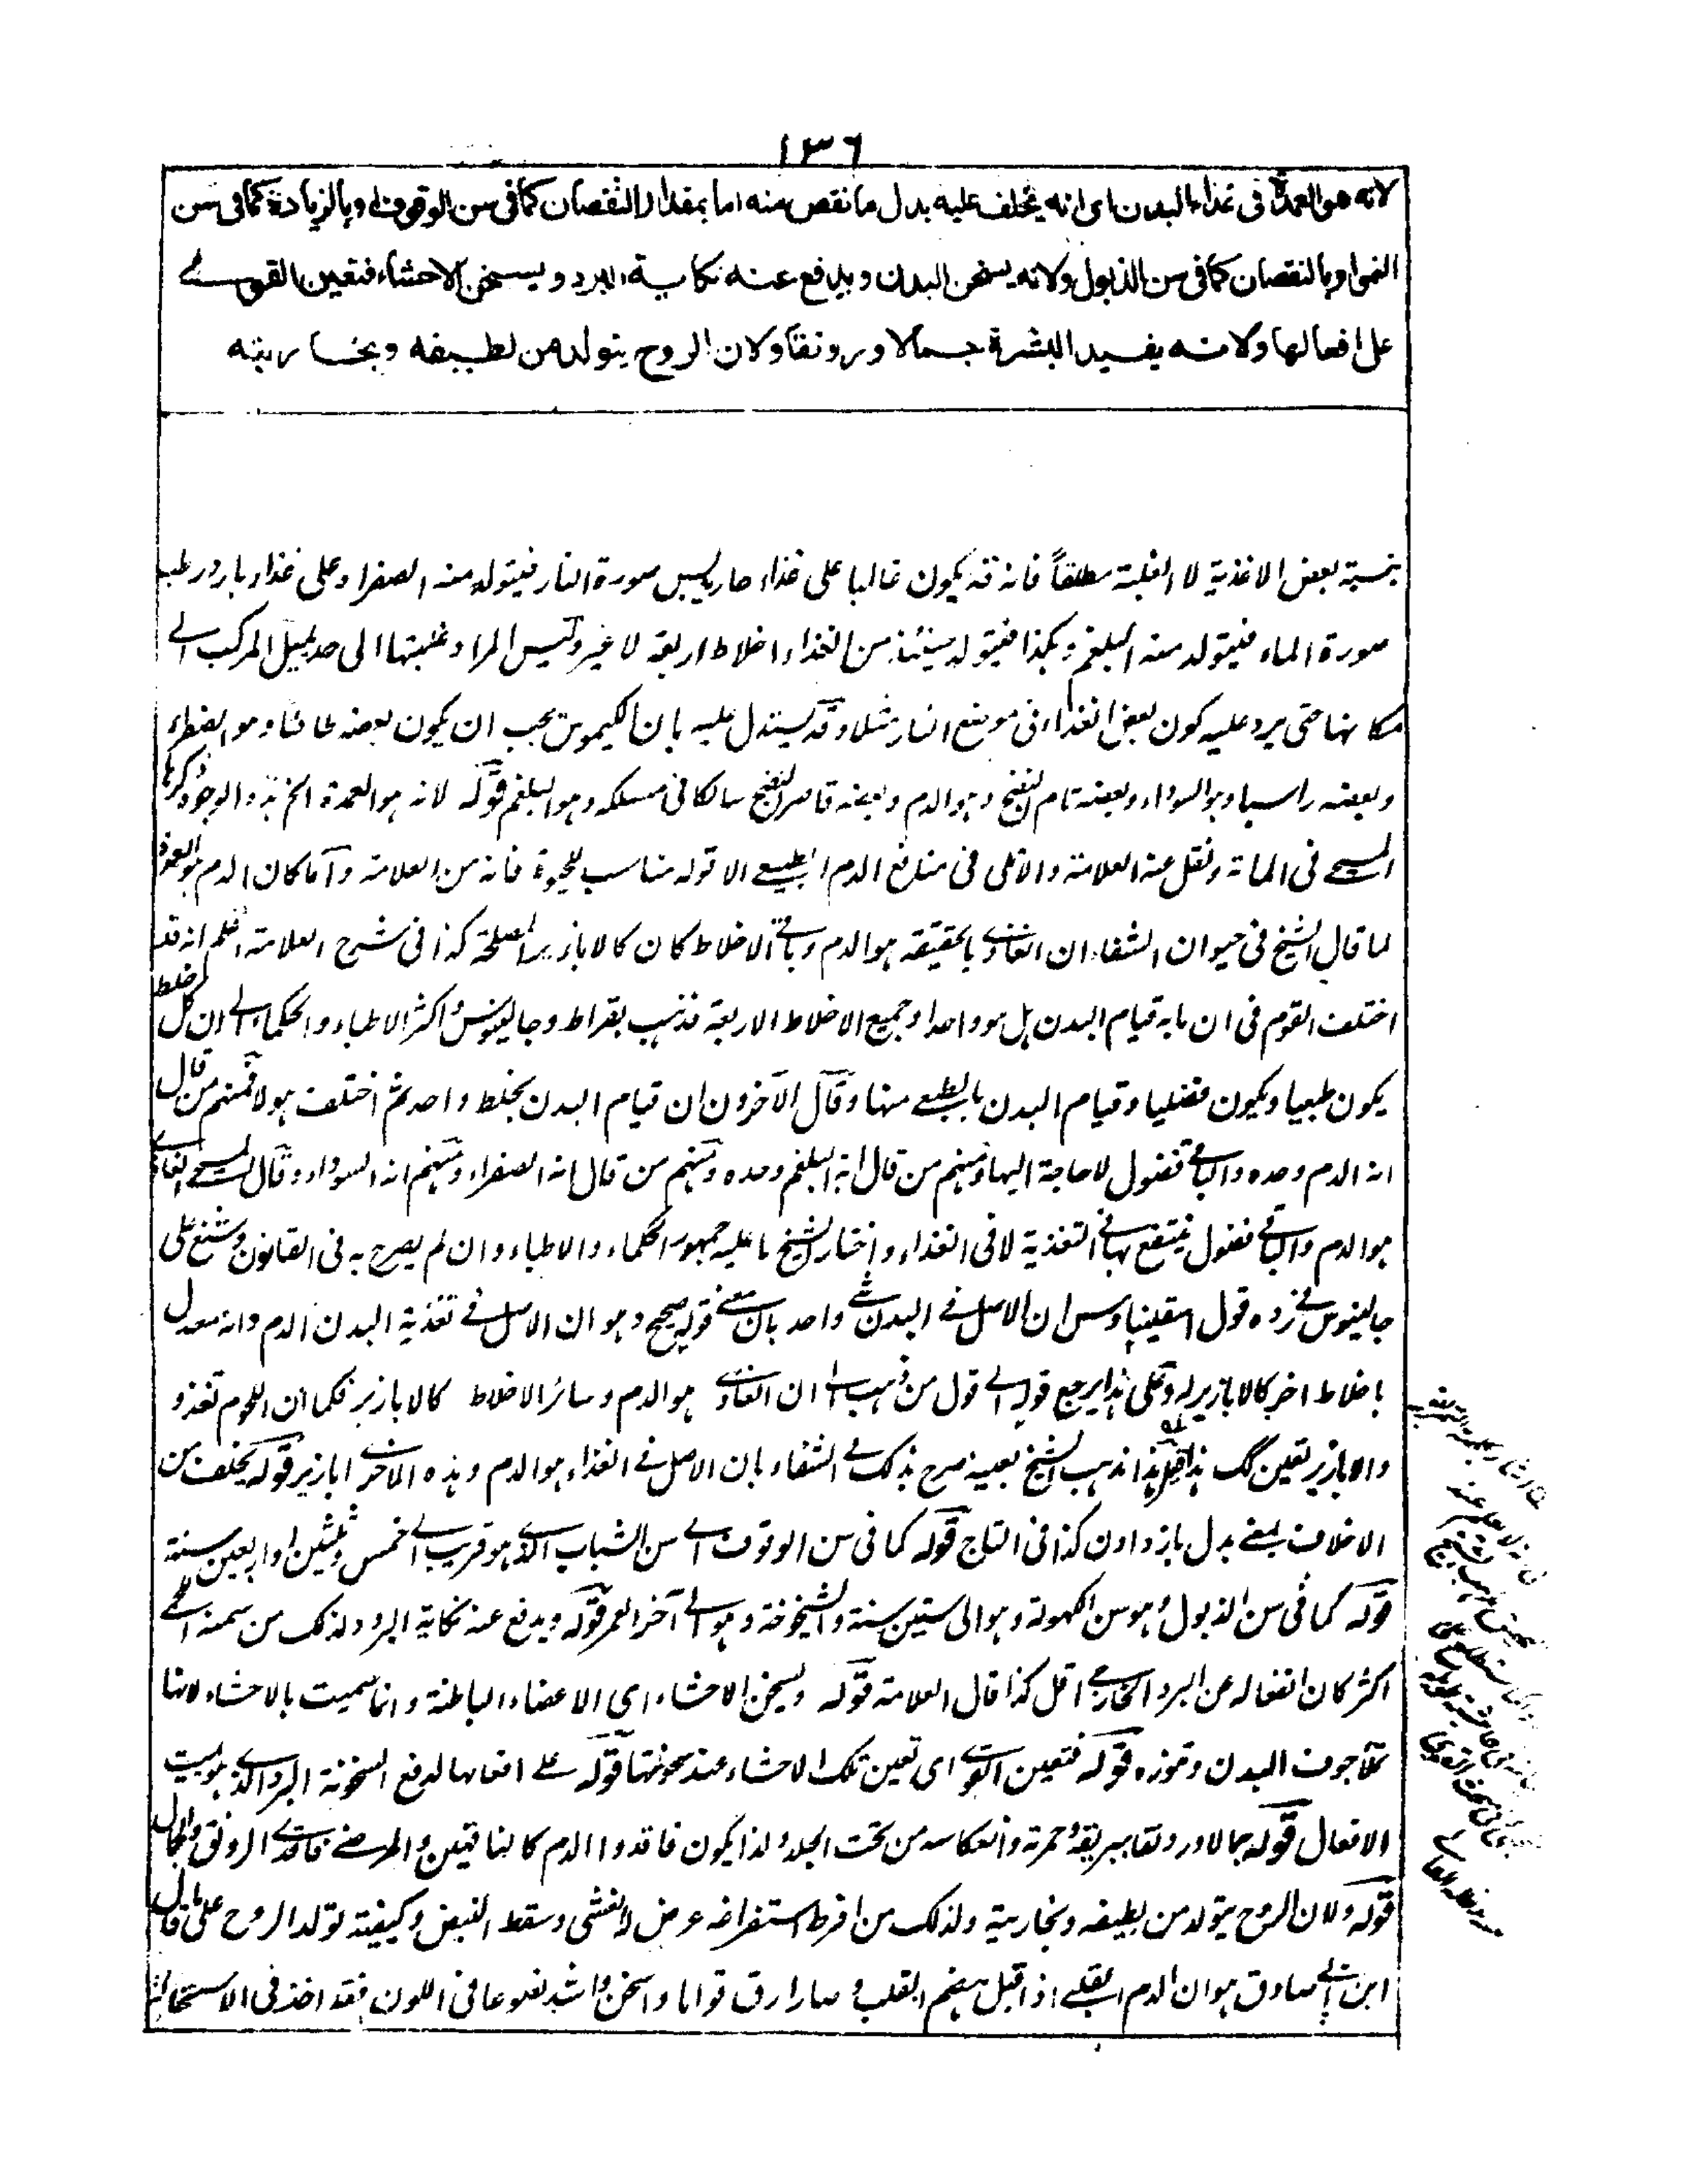 ١٣٦
لانه هو العمدة فى غذاء البدن اى انه يخلف عليه بدل ما نقص منه اما بمقدار النقصان كما فى سن الوقوف او بالزيادة كما فى سن
النمو او بالنقصان كما فى سن الذبول ولانه يسخن البدن ويدافع عنه نكاية البرد ويسخن الاحشاء فتعين القوى
على افعالها ولانه يفيد البشرة جمالا ورونقا ولان الروح يتولد من لطيفه وبخاريته
بنسبة بعض الاغذية لا الغلبة مطلقاً فانه قد يكون غالبا على غذاء حار يابس صورة النار فيتولد منه الصفرا وعلى غذاء بارد رطب
صورة الماء فيتولد منه البلغم وهكذا فيتولد حينئذ من الغذاء اخلاط اربعة لا غير وليس المراد غلبتها الى حد يميل المركب الى
مكانها حتى يرد عليه كون بعض الغذاء فى موضع النار مثلا وقد يستدل عليه بان الكيموس يجب ان يكون بعضه طافئا وهو الصفراء
وبعضه راسبا وهو السوداء وبعضه تام النضج وهو الدم وبعضه قاصر النضج سالكا فى مسلكه وهو البلغم قوله لانه هو العمدة الخ هذه الوجوه ذكرها
المسيحى فى الماة ونقل عنه العلامة والاملى فى منافع الدم الطبيعى الا قوله مناسب للحيوة فانه من العلامة وآما كان الدم هو العمدة
لما قال الشيخ فى حيوان الشفاء ان الغاذى بالحقيقة هو الدم وباقى الاخلاط كان كالابازير المصلحة كذا فى شرح العلامة اعلم انه قد
اختلف القوم فى ان ما به قيام البدن هل هو واحد او جميع الاخلاط الاربعة فذهب بقراط وجالينوس واكثر الاطباء والحكماء الى ان كل خلط
يكون طبعيا ويكون فضليا وقيام البدن بالطبعى منها وقال الآخرون ان قيام البدن بخلط واحد ثم اختلف هولاء فمنهم من قال
انه الدم وحده والباقى فضول لا حاجة اليها ومنهم من قال انه البلغم وحده ومنهم من قال انه الصفراء ومنهم انه السوداء وقال المسيحى الغاذى
هو الدم والباقى فضول ينتفع بها فى التغذية لا فى الغذاء واختار الشيخ ما عليه جمهور الحكماء والاطباء وان لم يصرح به فى القانون وشنع على
جالينوس فى رده قول اسقينباوس ان الاصل فى البدن شئ واحد بان معنى قوله صحيح وهو ان الاصل فى تغذية البدن الدم وانه معدل
باخلاط اخر كالابازير له وعلى هذا يرجع قوله الى قول من ذهب الى ان الغاذى هو الدم وسائر الاخلاط كالابازير فكما ان اللحوم تغذو
والابازير تعين تلك هذا مذهب الشيخ بعينه صرح بذلك فى الشفاء بان الاصل فى الغذاء هو الدم وهذه الاخرى ابازير قوله يخلف من
الاخلاف بمعنى بدل باز دادن كذا فى التاج قوله كما فى سن الوقوف اى سن الشباب الذى هو قريب الى خمس وثلثين او اربعين سنة
قوله كما فى سن الذبول وهو سن الكهولة وهو الى ستين سنة والشيخوخة وهو الى آخر العمر قوله ويدفع عنه نكاية البرد ولذلك من سمنه اللحمى
اكثر كان انفعاله عن البرد الخارجى اقل كذا قال العلامة قوله ويسخن الاحشاء اى الاعضاء الباطنة وانما سميت بالاحشاء لانها
تملأ جوف البدن وتموزه قوله فتعين القوى اى تعين تلك الاحشاء عند سخونتها قوله على افعالها لدفع السخونة البرد الذى هو مميت
الافعال قوله جمالا ورونقا ببريقه وحمرة وانعكاسه من تحت الجلد ولذا يكون فاقدوا الدم كالناقهين والمرضى فاقدى الرونق والجمال
قوله ولان الروح يتولد من لطيفه وبخاريته ولذلك من افرط استفراغه عرض له الغشى وسقط النبض وكيفيته تولد الروح على ما قال
ابن ابى صادق هو ان الدم القلبى اذا قبل هضم القلب وصار ارق قواما واسخن واشد نصوعا فى اللون فقد اخذ فى الاستحالة